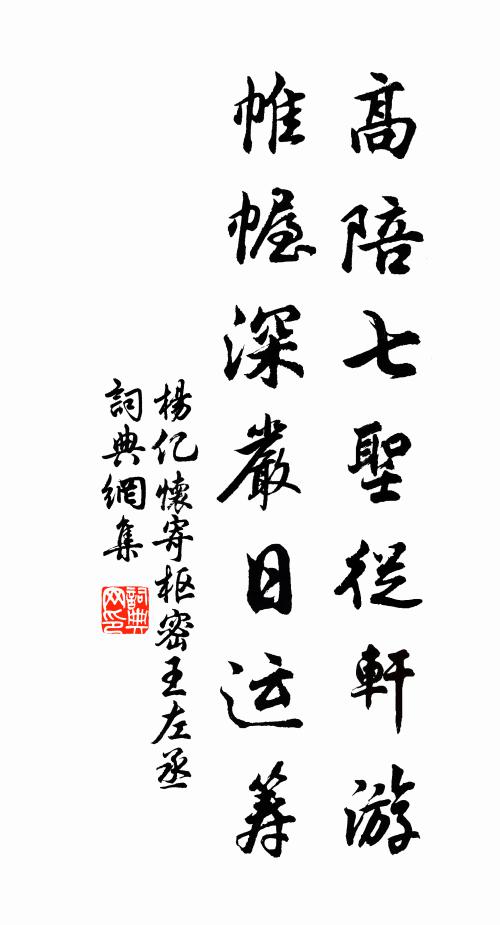 高陪七聖從軒游
帷幄深嚴日运筹
楊亿懷寄枢密王左丞
詞典網集
詞典网印